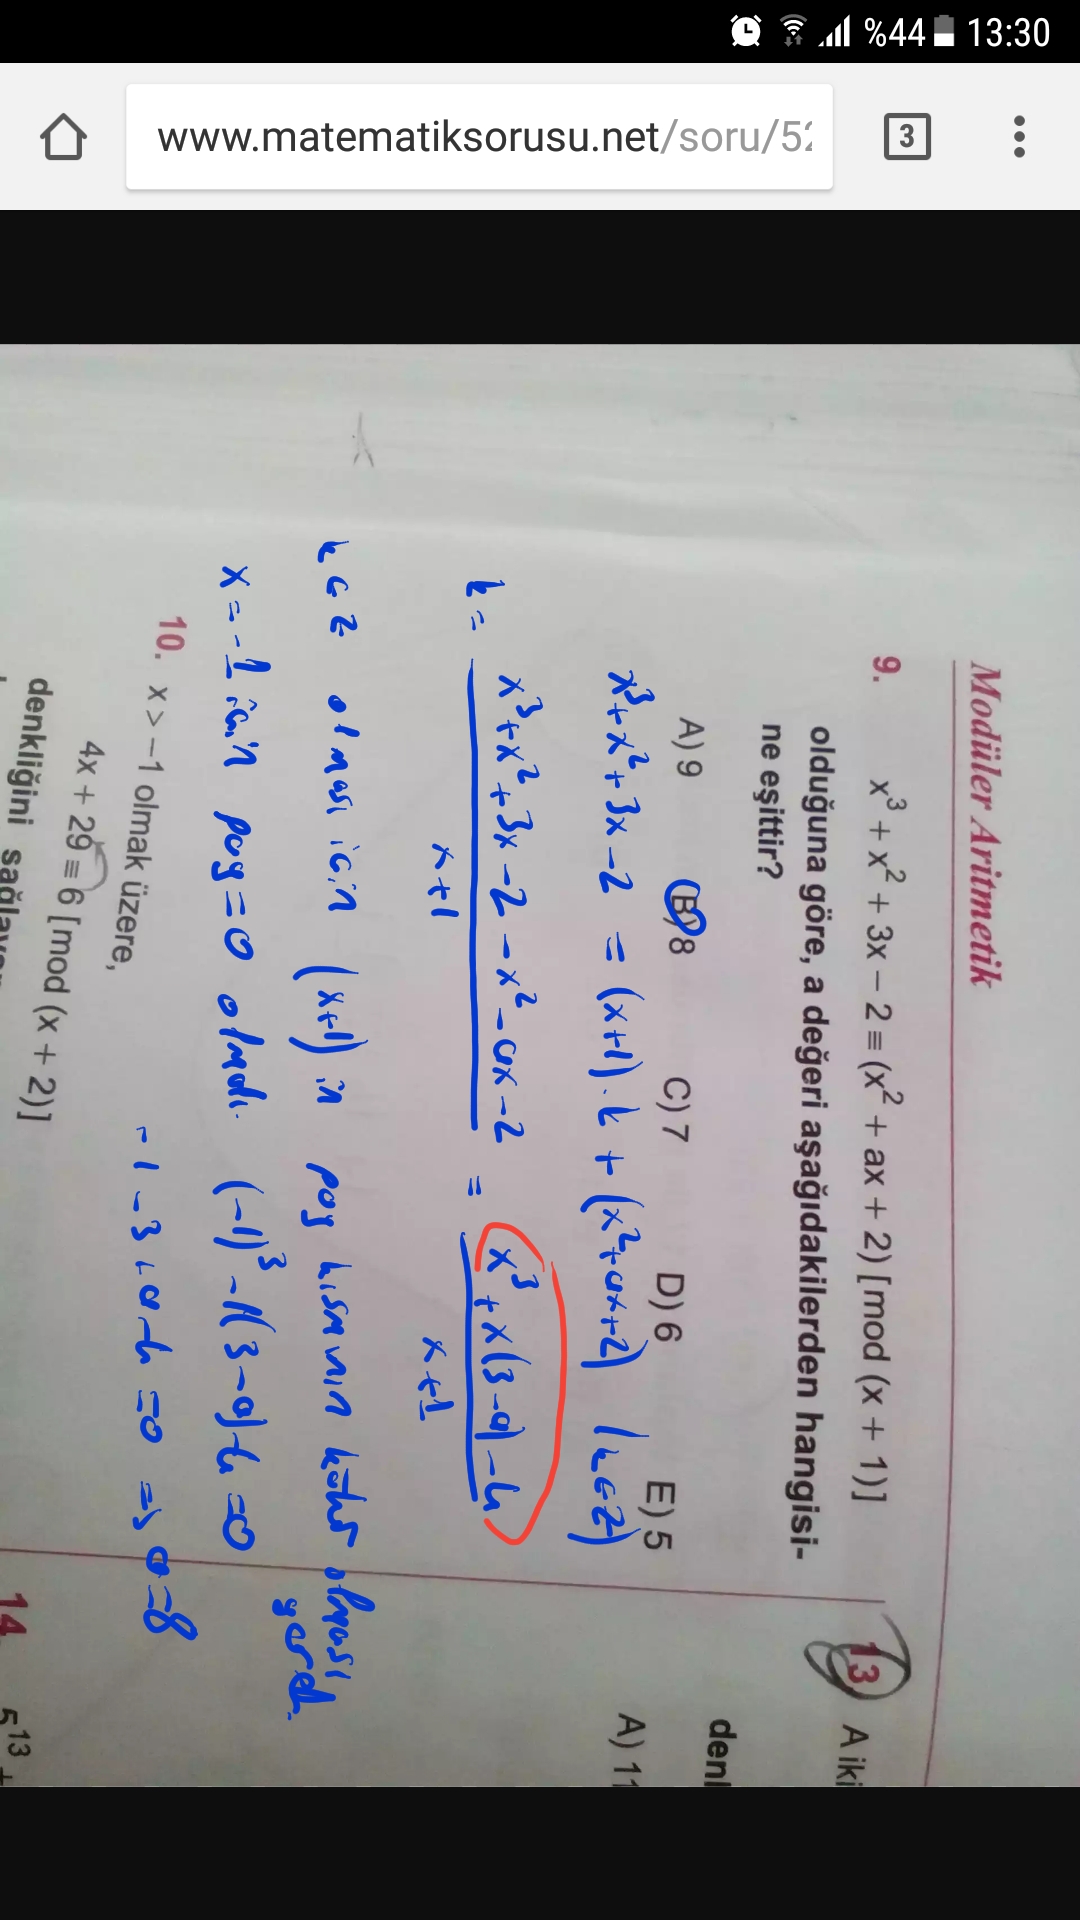 %44 13:30
www.matematiksorusu.net/soru/52
3
Modüler Aritmetik
9. x³ + x² + 3x – 2 ≡ (x² + ax + 2) [mod (x + 1)]
olduğuna göre, a değeri aşağıdakilerden hangisi-
ne eşittir?
A) 9 B) 8 C) 7 D) 6 E) 5
x³+x²+3x-2 = (x+1).k + (x²+ax+2) (k∈Z)
k = x³+x²+3x-2-x²-ax-2 / x+1 = x³+x(3-a)-4 / x+1
k∈Z olması için (x+1) in pay kısmının kökü olması
gerek.
x=-1 için pay=0 olmalı. (-1)³-1(3-a)-4=0
-1-3+a-4=0 => a=8
10. x > –1 olmak üzere,
4x + 29 ≡ 6 [mod (x + 2)]
denkliğini
13 A iki
denl
A) 11
14
5¹³ +